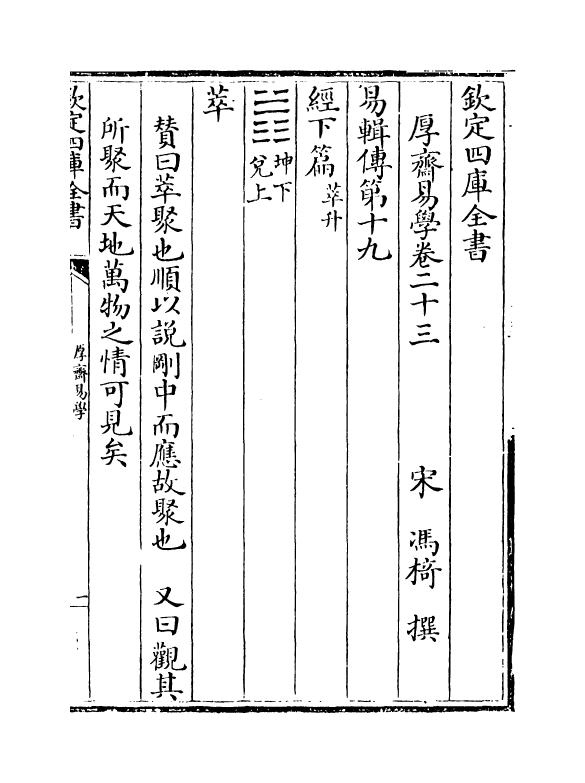 欽定四庫全書
厚齋易學卷二十三
宋 馮椅 撰
易輯傳第十九
經下篇 萃升
坤下
兌上
萃
賛曰萃聚也順以說剛中而應故聚也 又曰觀其
所聚而天地萬物之情可見矣
欽定四庫全書
厚齋易學